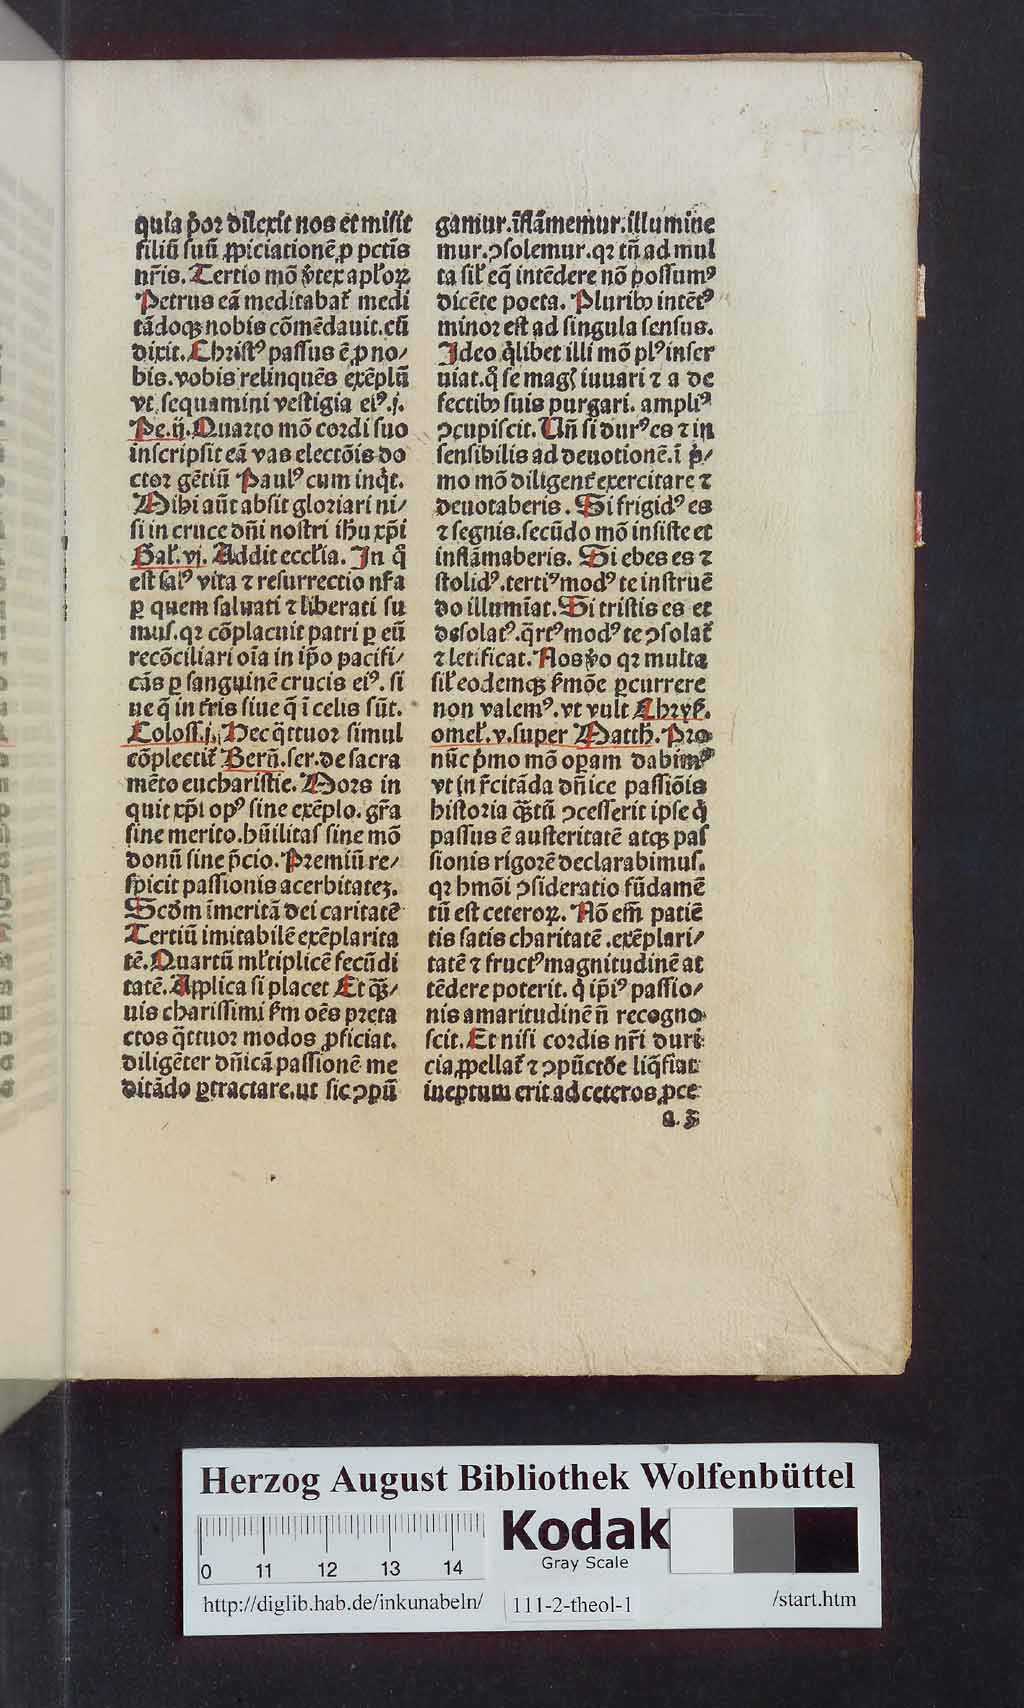 quia p̄or dilexit nos et misit
filiū suū ꝓpiciationē ꝓ pctīs
nr̄is. Tertio mō v̄tex apl'oꝝ
Petrus eā meditabat᷑ medi
tādoqꝫ nobis cōmēdauit. cū
dixit. Christꝰ passus ē ꝓ no/
bis. vobis relinquēs exēplū
vt sequamini vestigia eiꝰ. j.
Pe. ij. Quarto mō cordi suo
inscripsit eā vas electōis do
ctor gētiū Paulꝰ cum inq̇t.
Mihi aūt absit gloriari ni/
si in cruce dn̄i nostri ih̄u xp̄i
Gal'. vj. Addit eccl'ia. In q̊
est salꝰ vita ⁊ resurrectio nr̄a
ꝑ quem saluati ⁊ liberati su
mus. qꝛ cōplacuit patri ꝑ eū
recōciliari oīa in ip̄o pacifi/
cās ꝑ sanguinē crucis eiꝰ. si
ue q̄ in tr̄is siue q̄ ī celis sūt.
Coloss. j. Hec q̈ttuor simul
cōplectit᷑ Bern̄. ser. de sacra
mēto eucharistie. Mors in
quit xp̄i opꝰ sine exēplo. gr̄a
sine merito. hūilitas sine mō
donū sine p̄cio. Premiū re/
spicit passionis acerbitatez.
Scd̄m īmeritā dei caritatē
Tertiū imitabilē exēplarita
tē. Quartū ml'tiplicē fecūdi
tatē. Applica si placet Et qꝫ̄/
uis charissimi s̄m oēs preta
ctos q̈ttuor modos ꝓficiat.
diligēter dn̄icā passionē me
ditādo ꝑtractare. ut sic ꝯpū
gamur. īflāmemur. illumine
mur. ꝯsolemur. qꝛ tn̄ ad mul
ta sil' eq̄ intēdere nō possumꝰ
dicēte poeta. Pluribꝫ intētꝰ
minor est ad singula sensus.
Ideo q̇libet illi mō plꝰ inser
uiat. q̊ se magꝭ iuuari ⁊ a de
fectibꝫ suis purgari. ampliꝰ
ꝯcupiscit. Un̄ si durꝰ es ⁊ in
sensibilis ad deuotionē. ī p̄/
mo mō diligent᷑ exercitare ⁊
deuotaberis. Si frigidꝰ es
⁊ segnis. secūdo mō insiste et
inflāmaberis. Si ebes es ⁊
stolidꝰ. tertiꝰ modꝰ te instruē
do illumīat. Si tristis es et
dssolatꝰ. q̈rtꝰ modꝰ te ꝯsolat᷑
⁊ letificat. Nos v̄o qꝛ multa
sil' eodemqꝫ s̄ mōe ꝑcurrere
non valemꝰ. vt vult Chrys̄.
omel'. v. super Matth̄. Pro
nūc p̄mo mō oꝑam dabimꝰ
vt in r̄citāda dn̄ice passiōis
historia qꝫ̄tū ꝯcesserit ipse q̇
passus ē austeritatē atqꝫ pas
sionis rigorē declarabimus.
qꝛ hmōi ꝯsideratio fūdamē
tū est ceteroꝝ. Nō em̄ patiē
tis satis charitatē. exēplari/
tatē ⁊ fructꝰ magnitudinē at
tēdere poterit. q̇ ip̄iꝰ passio/
nis amaritudinē n̄ recogno
scit. Et nisi cordis nr̄i duri
cia ꝓpellat᷑ ⁊ ꝯpūctōe liq̄fiat
ineptum erit ad ceteros ꝓce
Herzog August Bibliothek Wolfenbüttel
0 11 12 13 14
Kodak
Gray Scale
http://diglib.hab.de/inkunabeln/ 111-2-theol-1 /start.htm